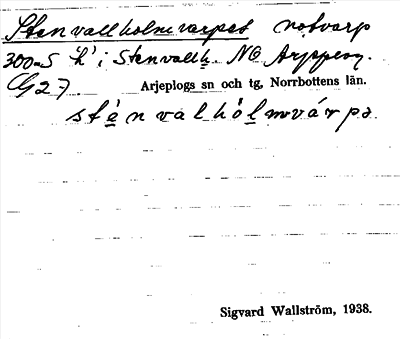 Stenvallholmvarpet notvarp
300 m S "h" i Stenvallh. NO Arjeplog.
G 27. Arjeplogs sn och tg, Norrbottens län.
stȧ̱nvalhȯ̱lmvárpə.
Sigvard Wallström, 1938.